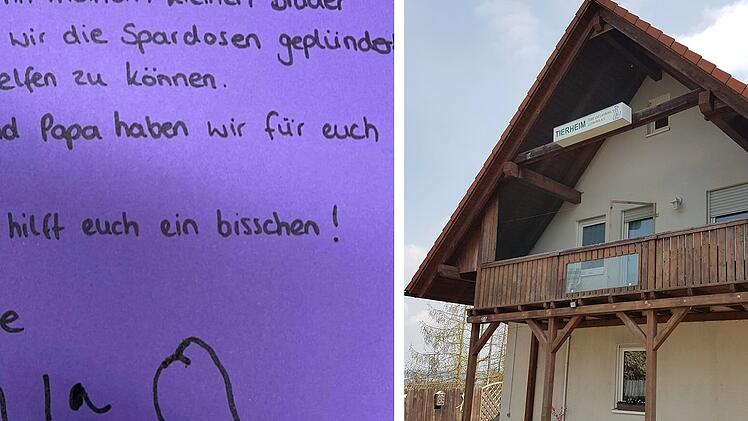 meinem kleinen Bruder
wir die Spardosen geplünder
elfen zu können.
d Papa haben wir für euch
hilft euch ein bisschen!
e
la
TIERHEIM